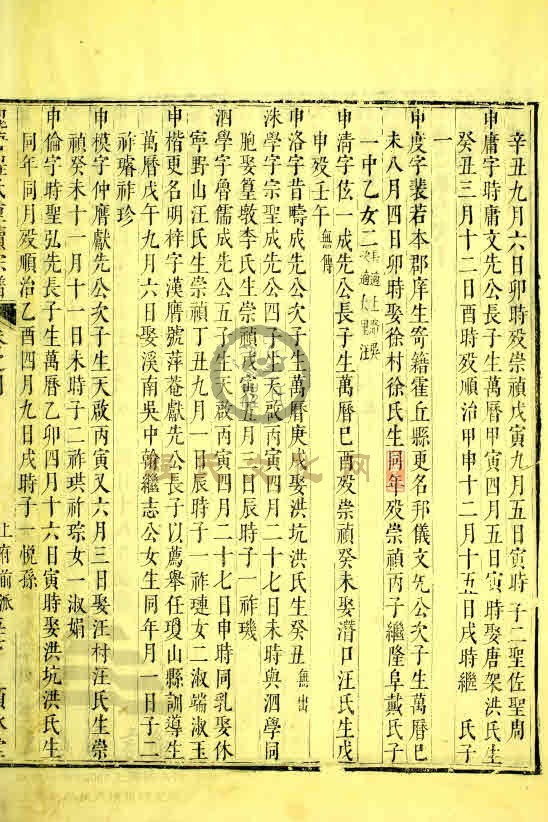 辛丑九月六日卯時殁崇禎戊寅九月五日寅時子二聖佐聖周
申庸字時庸文先公長子生萬曆甲寅四月五日寅時娶唐架洪氏生
癸丑三月十二日酉時殁順治甲申十二月十五日戌時繼 氏子
一
申度字裴若本郡庠生寄籍霍丘縣更名邦儀文先公次子生萬曆巳
未八月四日卯時娶徐村徐氏生同年殁崇禎丙子繼隆阜戴氏子
一中乙女二
申清字伭一成先公長子生萬曆巳酉殁崇禎癸未娶潛口汪氏生戊
申殁壬午無傳
申洛字昔疇成先公次子生萬曆庚戌娶洪坑洪氏生癸丑無出
洙學字宗聖成先公四子生天啟丙寅四月二十七日未時與泗學同
胞娶篁墩李氏生崇禎戊寅五月三日辰時子一祚璣
泗學字魯儒成先公五子生天啟丙寅四月二十七日申時同乳娶休
寧野山汪氏生崇禎丁丑九月一日辰時子一祚璉女二淑端淑玉
申楷更名明梓字漢鷹號萍菴獻先公長子以薦舉任瓊山縣訓導生
萬曆戊午九月六日娶溪南吳中翰繼志公女生同年月一日子二
祚璿祚珍
申模字仲鷹獻先公次子生天啟丙寅又六月三日娶汪村汪氏生崇
禎癸未十一月十一日未時子二祚珙祚琮女一淑娟
申倫字時聖弘先長子生萬曆乙卯四月十六日寅時娶洪坑洪氏生
同年同月殁順治乙酉四月九日戌時子一悅孫